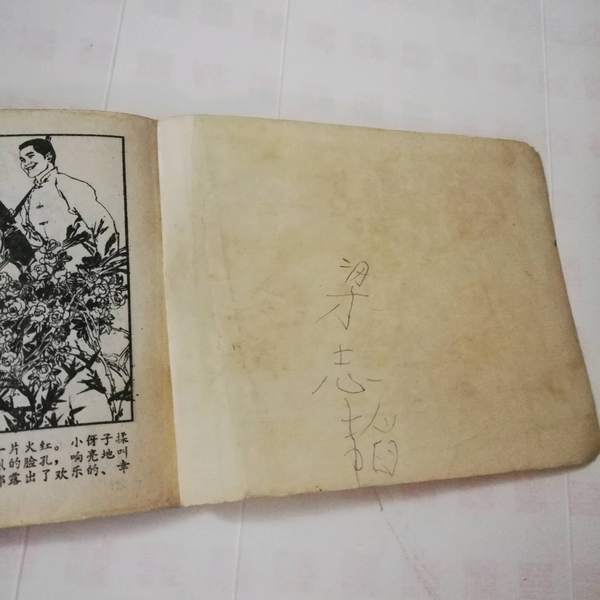 一片火红。小伢子揉
的脸孔，响亮地叫
露出了欢乐的、幸
梁志